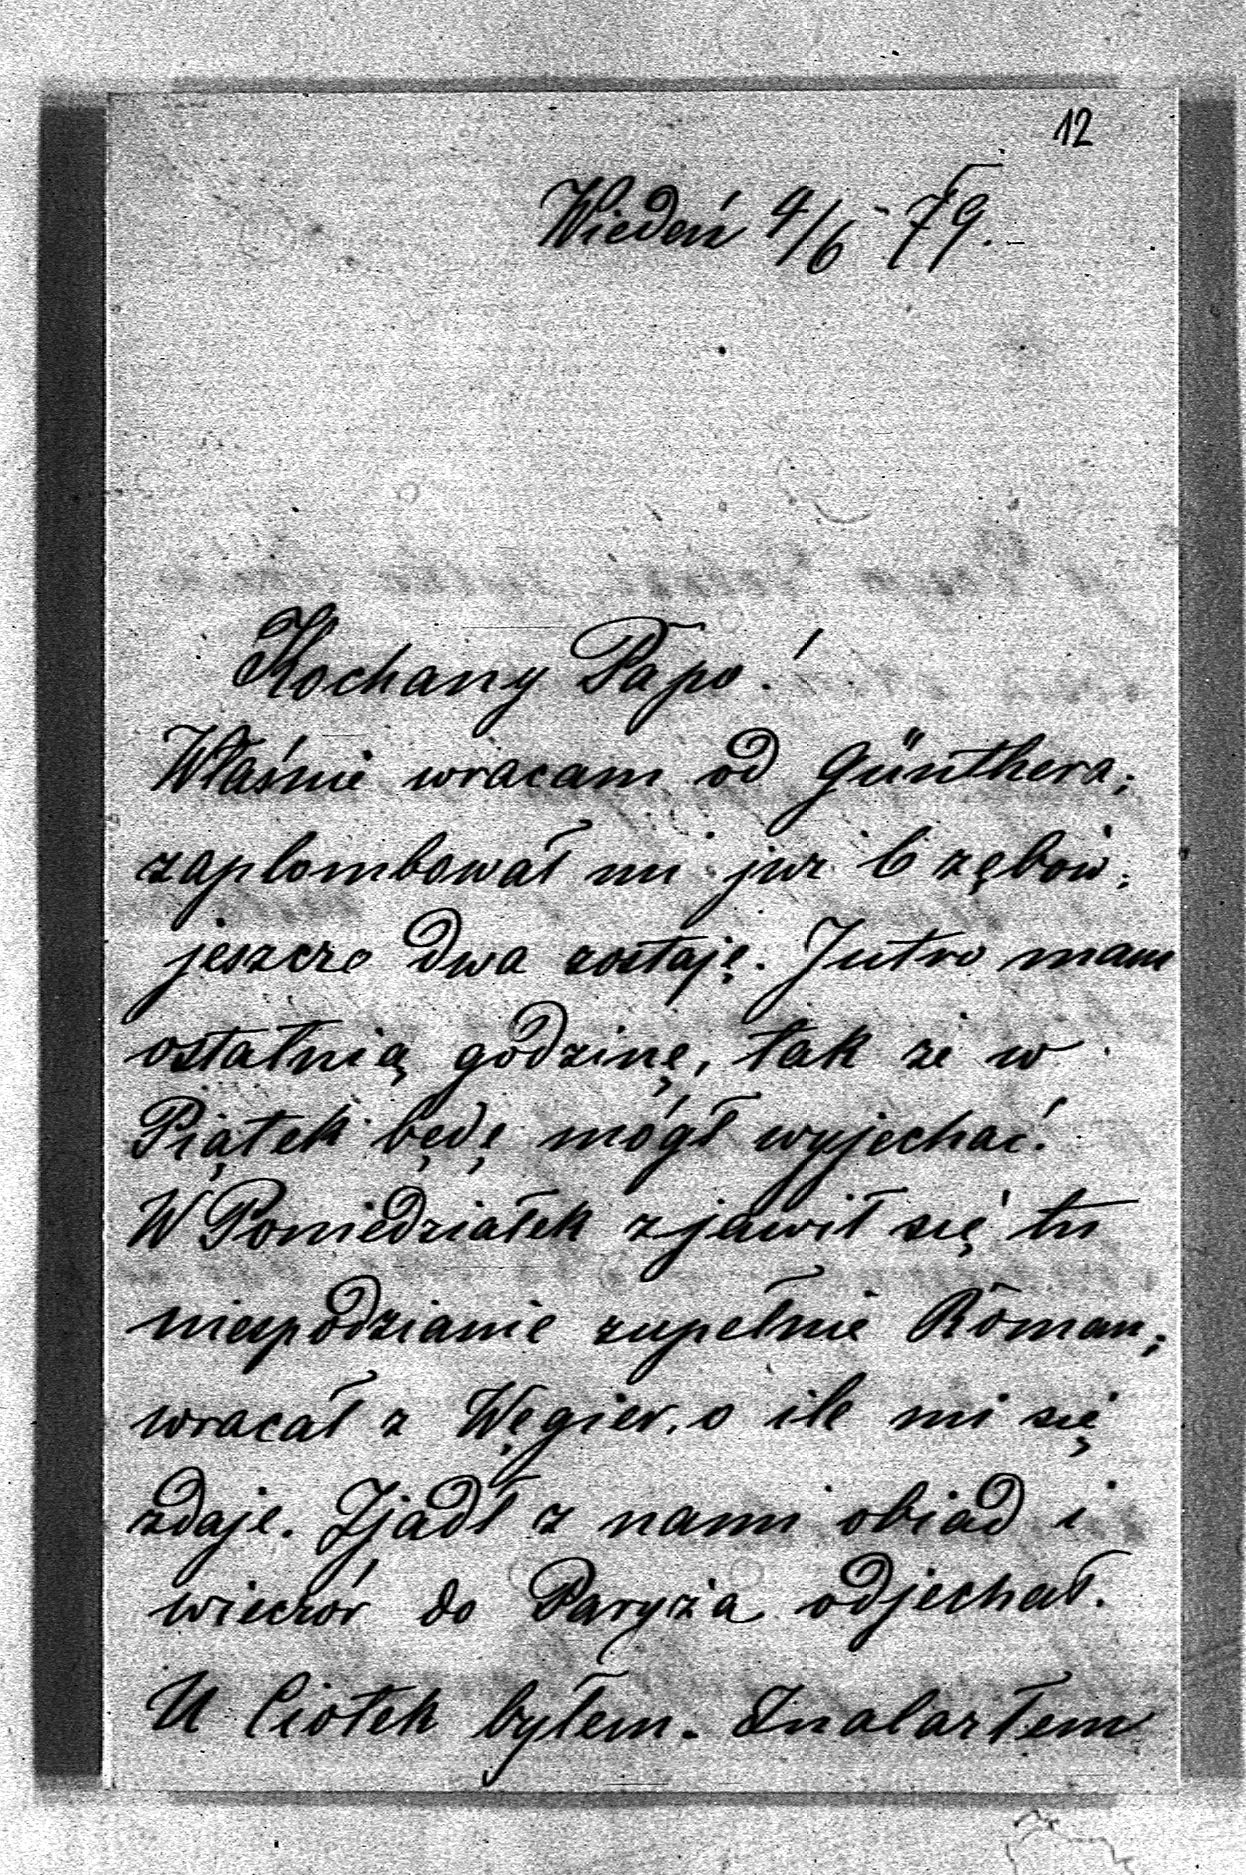 12
Wiedeń 4/6 - 79.
Kochany Papo!
Właśnie wracam od Günthera;
zaplombował mi już 6 zębów;
jeszcze dwa zostaję. Jutro mam
ostatnią godzinę, tak że w
Piątek będę mógł wyjechać.
W Poniedziałek zjawił się tu
niespodzianie zupełnie Roman;
wracał z Węgier, o ile mi się
zdaje. Zjadł z nami obiad i
wieczór do Paryża odjechał.
U Ciotek byłem. Znalazłem